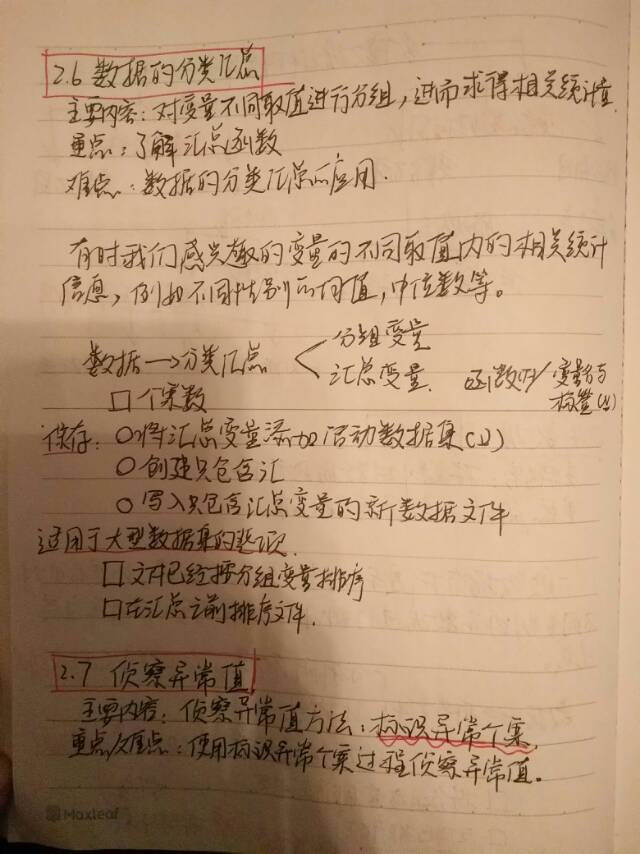 2.6 数据的分类汇总
主要内容：对变量不同取值进行分组，进而求得相关统计值
重点：了解汇总函数
难点：数据的分类汇总应用.
有时我们感兴趣的变量的不同取值内的相关统计
信息，例如不同性别的均值，中位数等。
数据→分类汇总 < 分组变量
汇总变量. 函数(F) 变量名与
标签(N)
□ 个案数
保存: ○将汇总变量添加活动数据集(D)
○ 创建只包含汇
○ 写入只包含汇总变量的新数据文件
适用于大型数据集的选项.
□ 文件已经按分组变量排序
□在汇总之前排序文件.
2.7 侦察异常值
主要内容：侦察异常值方法：标识异常个案.
重点/难点：使用标识异常个案过程侦察异常值。
Maxleaf